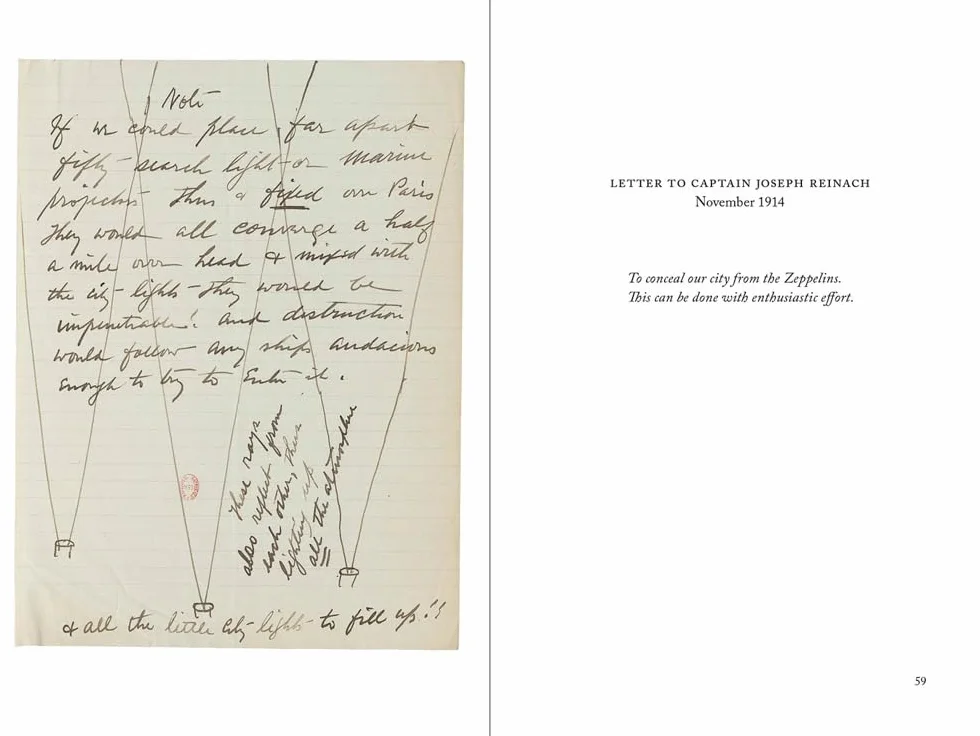 Note
If we could place, far apart
fifty search light or marine
projectors thus & fixed over Paris
They would all converge a half
a mile over head & mixed with
the city lights they would be
impenetrable! and destruction
would follow any ships audacious
enough to try to enter it.
these rays
also reflect from
each other, thus
lighting up
all the atmosphere
& all the little city lights to fill up!!
LETTER TO CAPTAIN JOSEPH REINACH
November 1914
To conceal our city from the Zeppelins.
This can be done with enthusiastic effort.
59